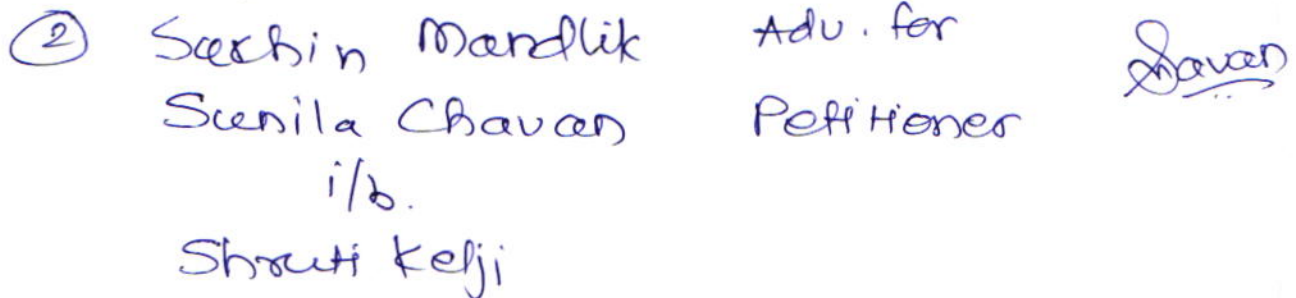 ② Sachin Mandlik Adv. for
Sunila Chavan Petitioner
i/b.
Shruti Kelji